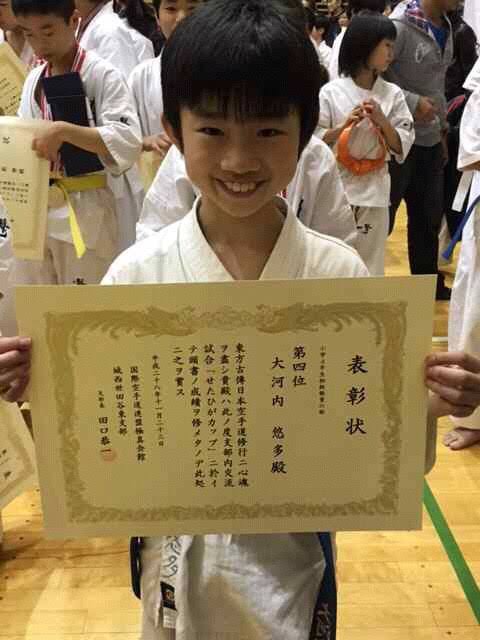 表彰状
第四位
大河内 悠多殿
東方古傳日本空手道修行ニ心魂
ヲ盡シ貴殿ハ此ノ度支部内交流
試合「せたひがカップ」ニ於イ
テ頭書ノ成績ヲ修メタノデ此処
ニ之ヲ賞ス
平成二十八年十一月二十三日
国際空手道連盟極真会館
城西世田谷東支部
支部長 田口恭一